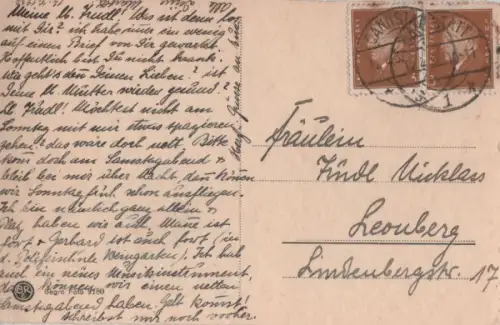 Meine lb. Friedl! Was ist denn los
mit Dir? ich habe nun ein wenig
auf einen Brief von Dir gewartet.
Hoffentlich bist Du nicht krank.
Wie geht's denn Deinen Lieben? ist
Deine lb. Mutter wieder gesund?
lb. Friedl! Möchtest nicht am
Sonntag mit mir etwas spazieren
gehen? das wäre doch nett. Bitte
komm doch am Samstagabend &
bleib bei mir über Nacht, dann können
wir Sonntag früh schon ausfliegen.
Ich bin nämlich ganz allein &
Platz haben wir auch. Mane ist
fort & Gerhard ist auch fort (in
d. Polizeischule Weingarten). Ich hab
auch ein neues Musikinstrument,
da können wir einen netten
Samstagabend haben. Gelt kommst!
schreibst mir noch vorher.
Fräulein
Friedl Nicklass
Leonberg
Lindenbergstr. 17